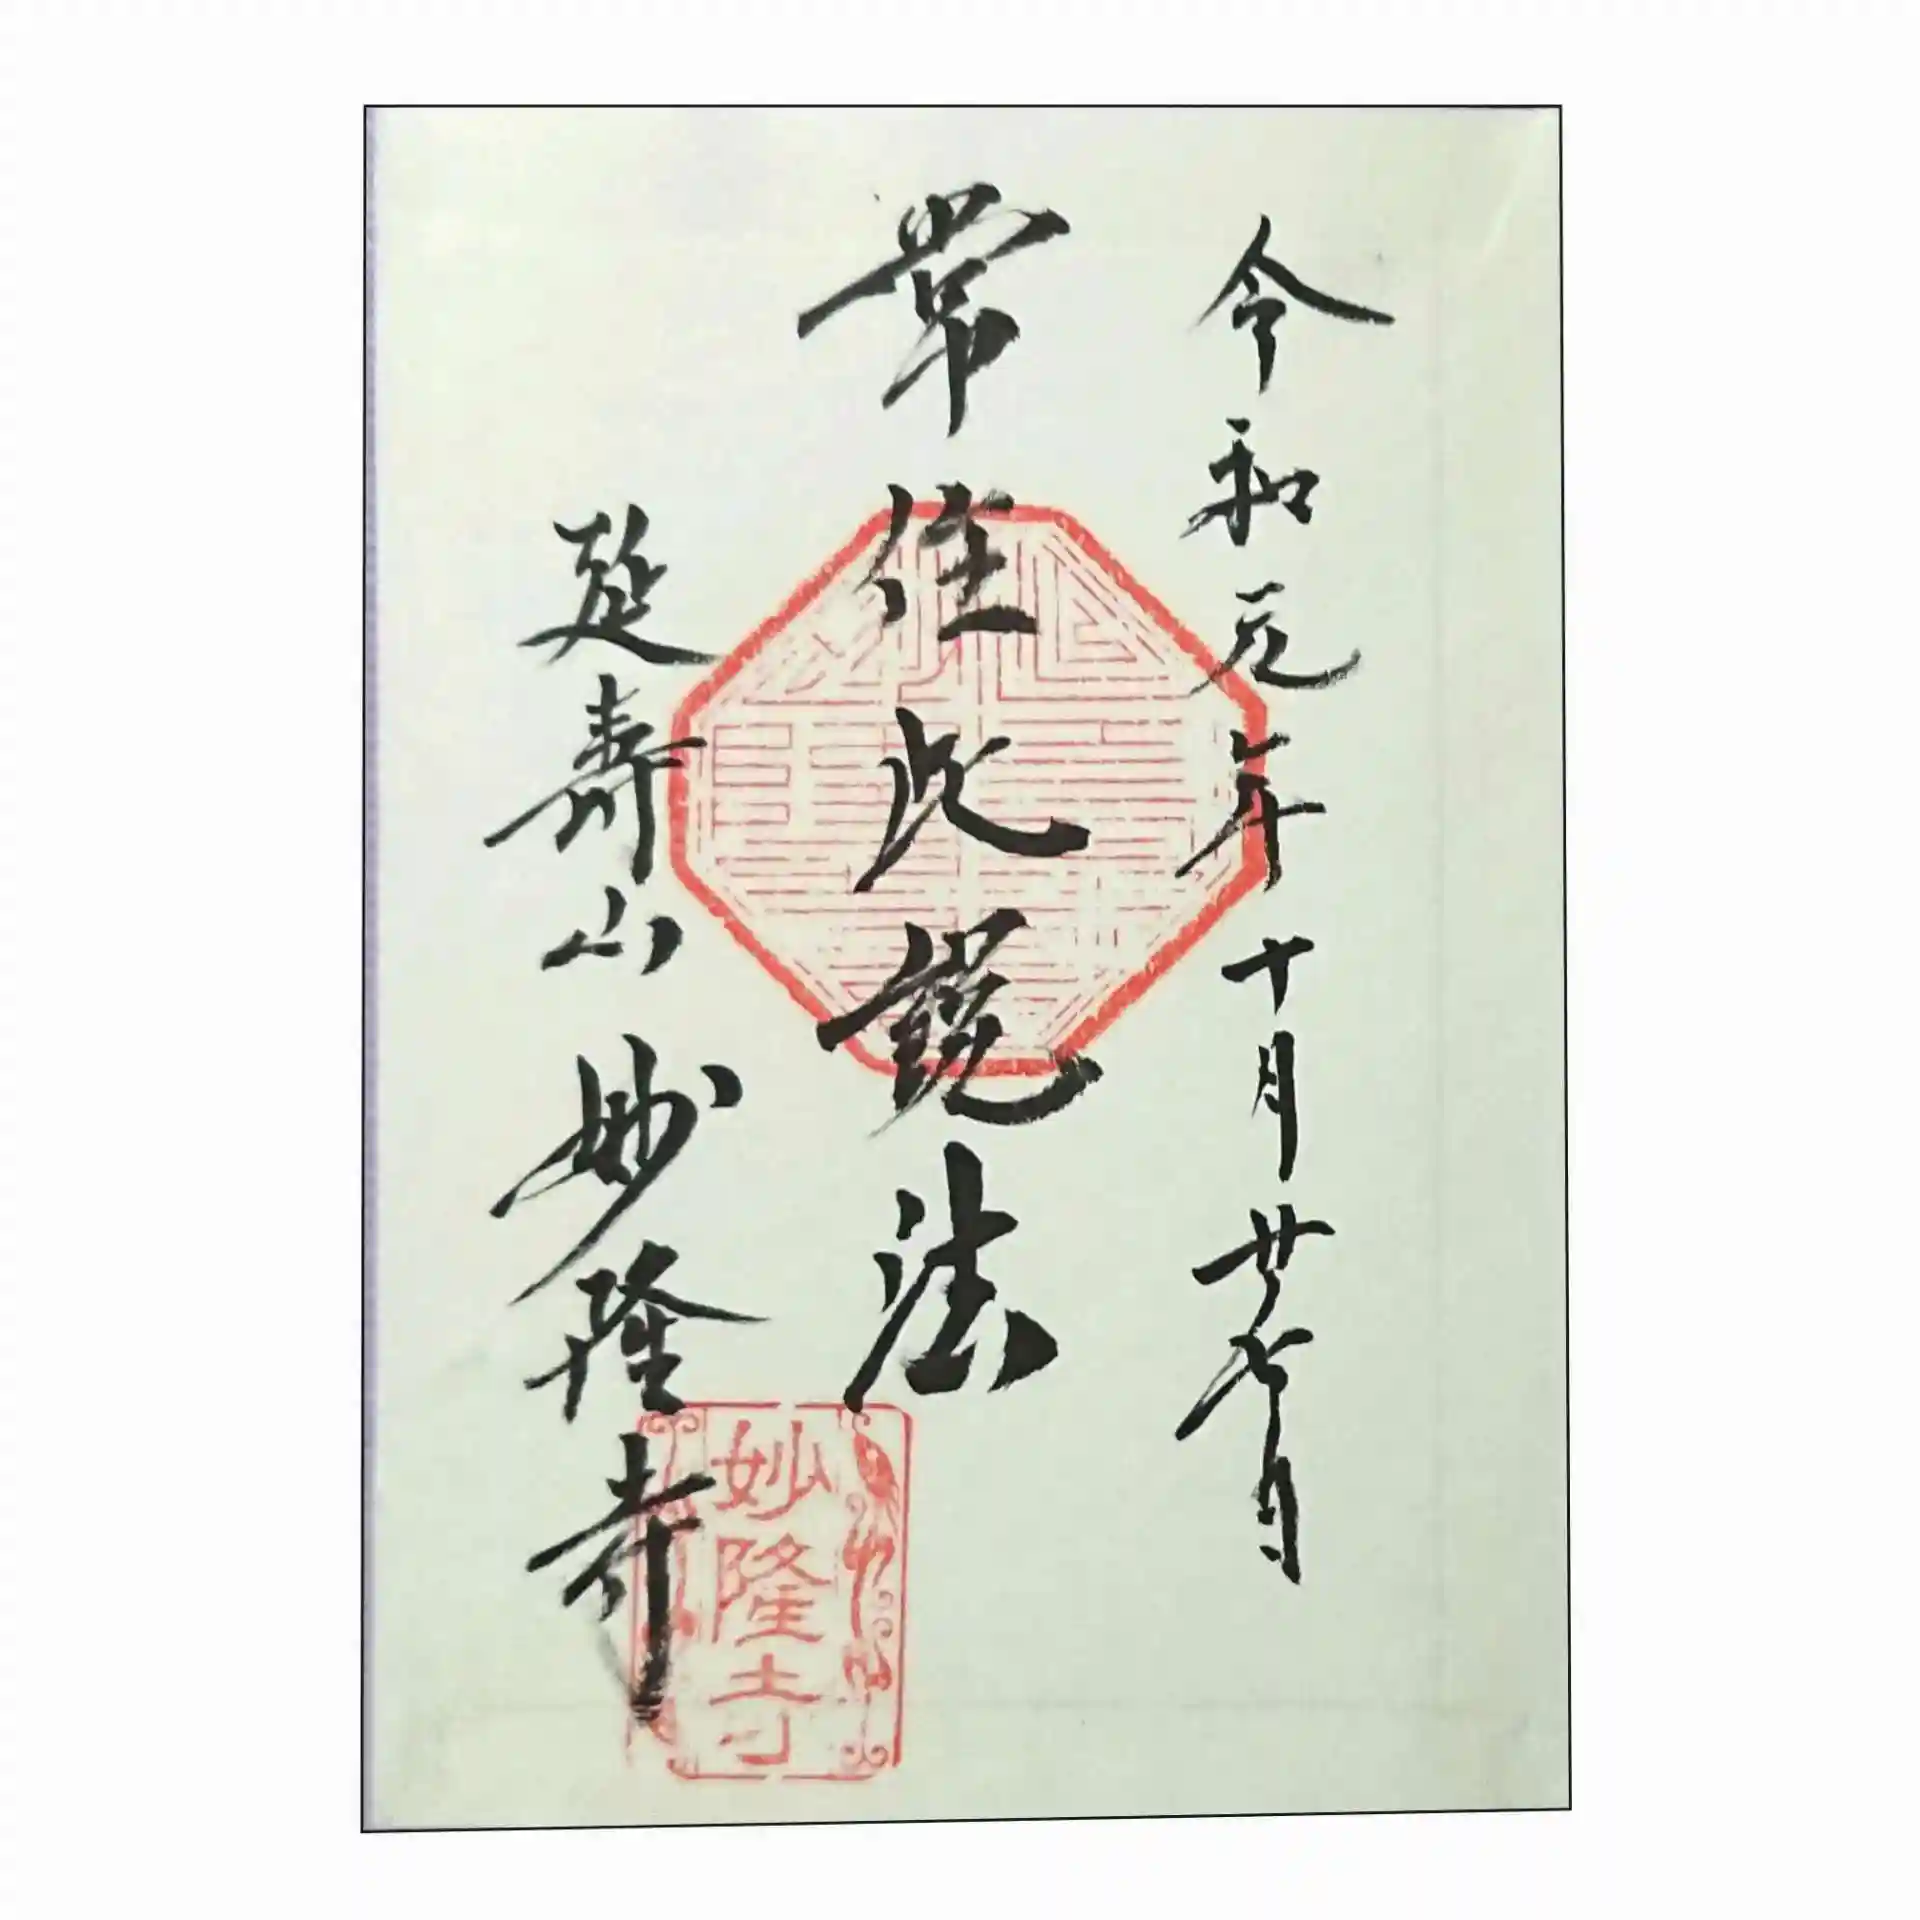 令和元年十月廿七日
常住此説法
延寿山 妙隆寺
妙隆寺